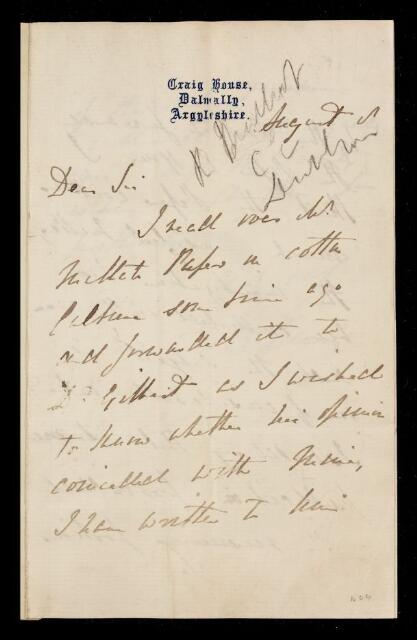 Craig House,
Dalmally,
Argyleshire.
August 8
Dear Sir
I read over Mr
Paper on cotton
Culture some time ago
and forwarded it to
Dr Gilbert as I wished
to know whether his opinion
coincided with mine,
I have written to him